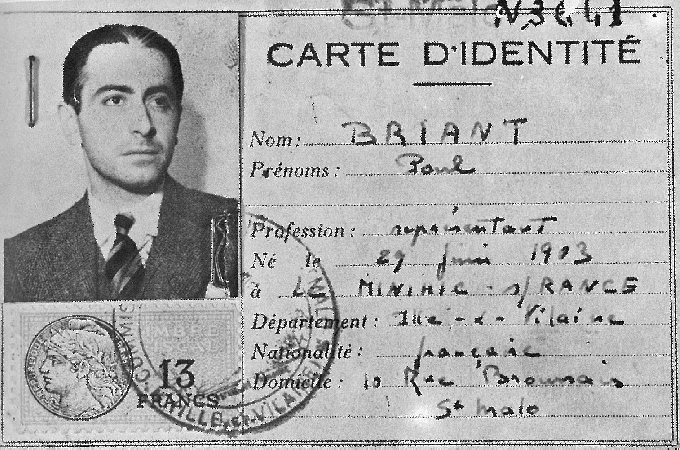 CARTE D'IDENTITÉ
Nom: BRIANT
Prénoms: Paul
Profession: représentant
Né le 29 juin 1903
à LE MINIHIC-s/RANCE
Département: Ille-&-Vilaine
Nationalité: française
Domicile: 10 Rue Broussais
St Malo
13
FRANCS
ILLE-ET-VILAINE